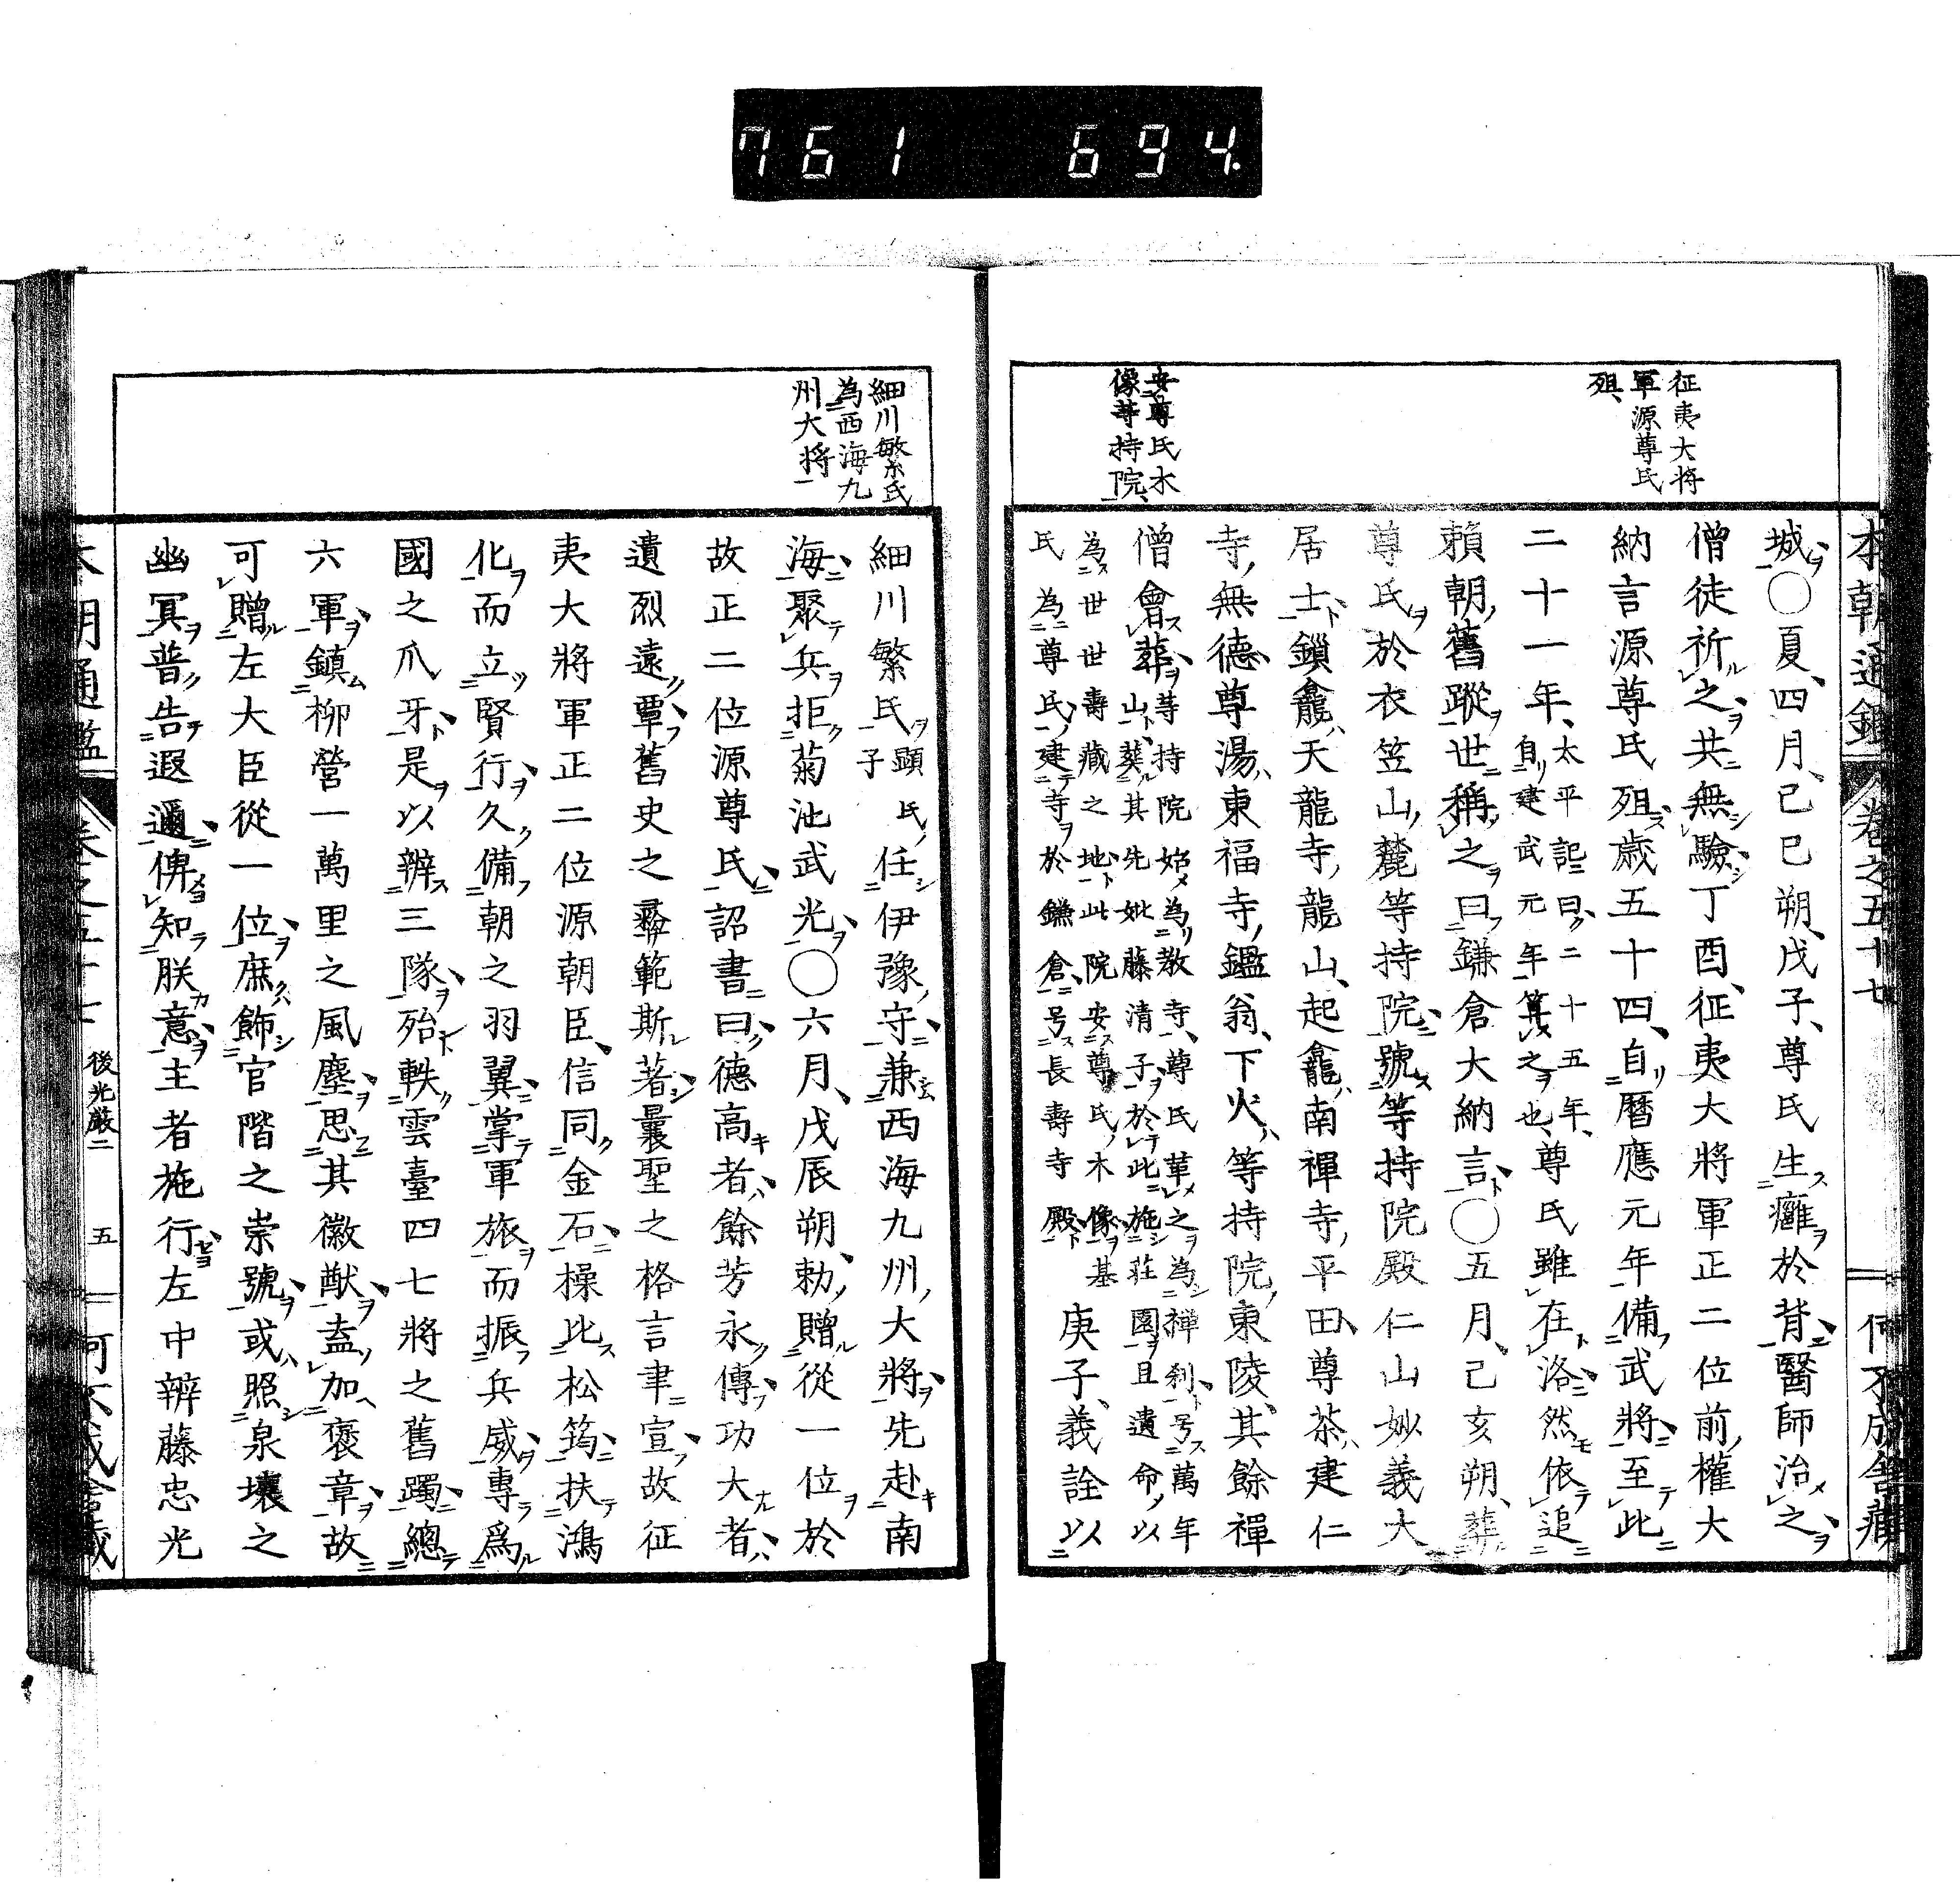 761 694.
本朝通鑑 卷之五十七 何不成舎藏
征夷大将
軍源尊氏
殂、
安尊氏木
像等持院、
城〇夏、四月、己巳朔、戊子、尊氏生癰於背、醫師治之
僧徒祈之共無驗丁酉、征夷大將軍正二位前權大
納言源尊氏殂歳五十四、自暦應元年備武將至此
二十一年、太平記曰二十五年、
自建武元年算之也、尊氏雖在洛然依追
賴朝舊蹤世稱之曰鎌倉大納言〇五月、己亥朔、葬
尊氏於衣笠山麓等持院號等持院殿仁山妙義大
居士鎖龕天龍寺龍山、起龕南禪寺平田、尊茶建仁
寺無德尊湯東福寺鑑翁、下火等持院東陵、其餘禪
僧會葬等持院始為敎寺、尊氏革之為禅刹号萬年
山、葬其先妣藤清子於此施莊園且遺命以
為世世壽藏之地此院安尊氏木像基
氏為尊氏建寺於鎌倉号長壽寺殿庚子、義詮以
細川繁氏
為西海九
州大将
細川繁氏顕氏
子任伊豫守兼西海九州大將先赴南
海聚兵拒菊池武光〇六月、戊辰朔、勅贈從一位於
故正二位源尊氏詔書曰德高者餘芳永傳功大者
遺烈遠覃舊史之彛範斯著曩聖之格言聿宣故征
夷大將軍正二位源朝臣、信同金石操比松筠扶鴻
化而立賢行久備朝之羽翼掌軍旅而振兵威專爲
國之爪牙是以辨三隊殆軼雲臺四七將之舊躅總
六軍鎮柳營一萬里之風塵思其徽猷盍加褒章故
可贈左大臣從一位庶飾官階之崇號或照泉壤之
幽冥普告遐邇俾知朕意主者施行左中辨藤忠光
本朝通鑑 卷之五十七 後光嚴二 五 何不成舎藏